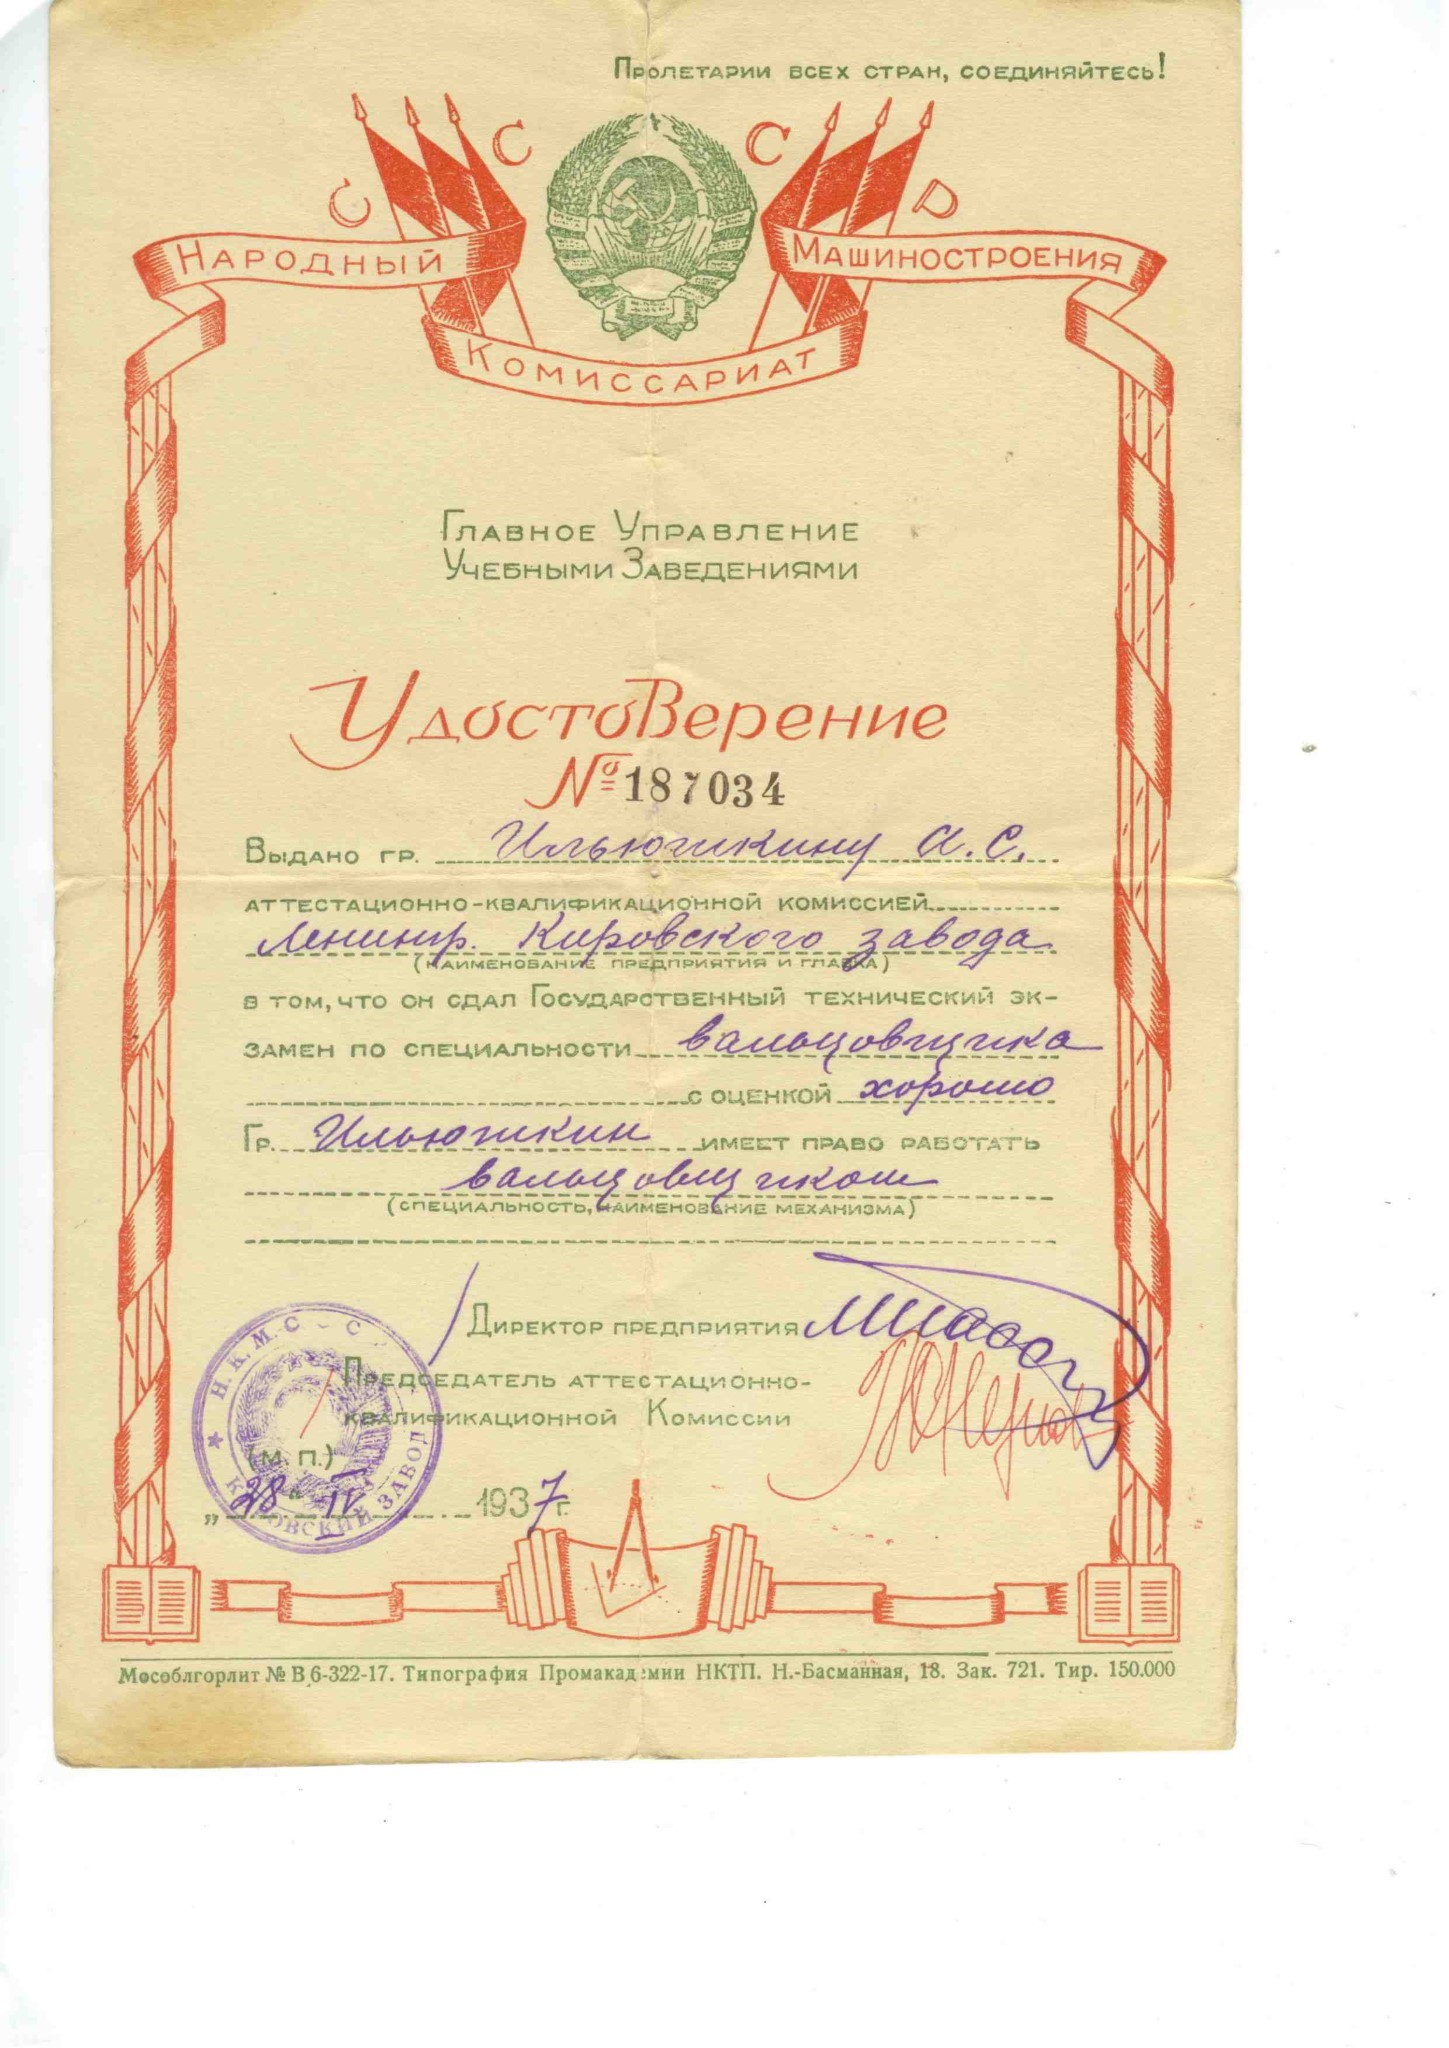 Пролетарии всех стран, соединяйтесь!
С С С Р
Народный Комиссариат Машиностроения
Главное Управление
Учебными Заведениями
Удостоверение
№ 187034
Выдано гр. Ильюшкину А.С.
аттестационно-квалификационной комиссией
Ленингр. Кировского завода
(наименование предприятия и главка)
в том, что он сдал Государственный технический эк-
замен по специальности вальцовщика
с оценкой хорошо
Гр. Ильюшкин имеет право работать
вальцовщиком
(специальность, наименование механизма)
Директор предприятия
Председатель аттестационно-
квалификационной Комиссии
(м. п.)
„28" IV 1937 г.
Н.К.М. С С
КИРОВСКИЙ ЗАВОД
Мособлгорлит № В 6-322-17. Типография Промакадемии НКТП. Н.-Басманная, 18. Зак. 721. Тир. 150.000